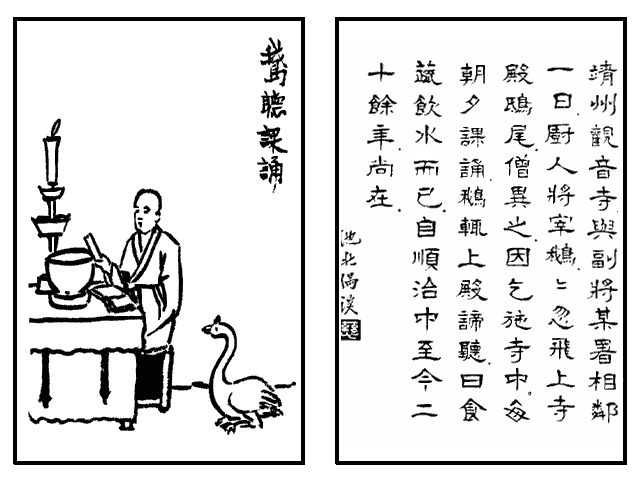 鵞聽課誦
靖州觀音寺。與副將某署相鄰
一日。廚人將宰鵝。〻忽飛上寺
殿鴟尾。僧異之。因乞施寺中。每
朝夕課誦。鵝輒上殿諦聽。日食
蔬飲水而已。自順治中至今二
十餘年尚在。
池北偶談